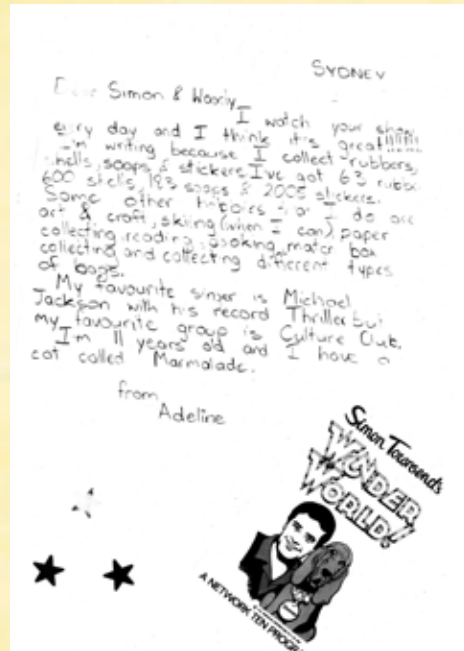 SYDNEY
Dear Simon & Woofy,
I watch your show
every day and I think it's great!!!!!!!
I'm writing because I collect rubbers,
shells, soaps & stickers I've got 63
600 shells, 183 soaps & 2005 stickers.
Some other I do are
art & craft, skiing (when I can) paper
collecting, reading, cooking, match box
collecting and collecting different types
of bags.
My favourite singer is Michael
Jackson with his record Thriller but
my favourite group is Culture Club.
I'm 11 years old and I have a
cat called Marmalade.
from
Adeline
Simon Townsend's
WONDER
WORLD!
A NETWORK TEN